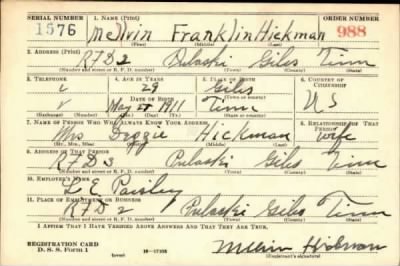 SERIAL NUMBER 1. NAME (Print) ORDER NUMBER
1576 Melvin Franklin Hickman 988
(First) (Middle) (Last)
2. ADDRESS (Print)
RFD 2 Pulaski Giles Tenn
(Number and street or R. F. D. number) (Town) (County) (State)
3. TELEPHONE 4. AGE IN YEARS 5. PLACE OF BIRTH 6. COUNTRY OF CITIZENSHIP
29 Giles
DATE OF BIRTH (Town or county)
May 1911 Tenn U S
(Mo.) (Day) (Yr.) (State or country)
7. NAME OF PERSON WHO WILL ALWAYS KNOW YOUR ADDRESS 8. RELATIONSHIP OF THAT PERSON
Mrs Hickman Wife
(Mr., Mrs., Miss) (First) (Middle) (Last)
9. ADDRESS OF THAT PERSON
RFD 3 Pulaski Giles Tenn
(Number and street or R. F. D. number) (Town) (County) (State)
10. EMPLOYER'S NAME
L E Paisley
11. PLACE OF EMPLOYMENT OR BUSINESS
RFD 2 Pulaski Giles Tenn
(Number and street or R. F. D. number) (Town) (County) (State)
I AFFIRM THAT I HAVE VERIFIED ABOVE ANSWERS AND THAT THEY ARE TRUE.
REGISTRATION CARD
D. S. S. Form 1 (over) Melvin Hickman
(Registrant's signature)